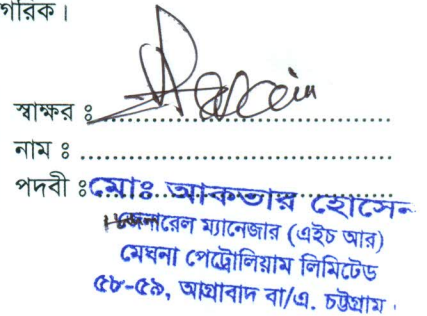 গরিক।
স্বাক্ষর ঃ
নাম ঃ
পদবী ঃ মোঃ আকতার হোসেন
জেনারেল ম্যানেজার (এইচ আর)
মেঘনা পেট্রোলিয়াম লিমিটেড
৫৮-৫৯, আগ্রাবাদ বা/এ. চট্টগ্রাম।